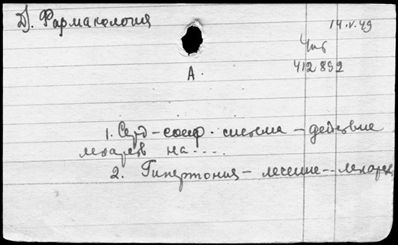 Д). Фармакология
14.V.49
Чит
412892
А.
1. Серд-сосуд. система - действие
лекарств на....
2. Гипертония - лечение - лекарств